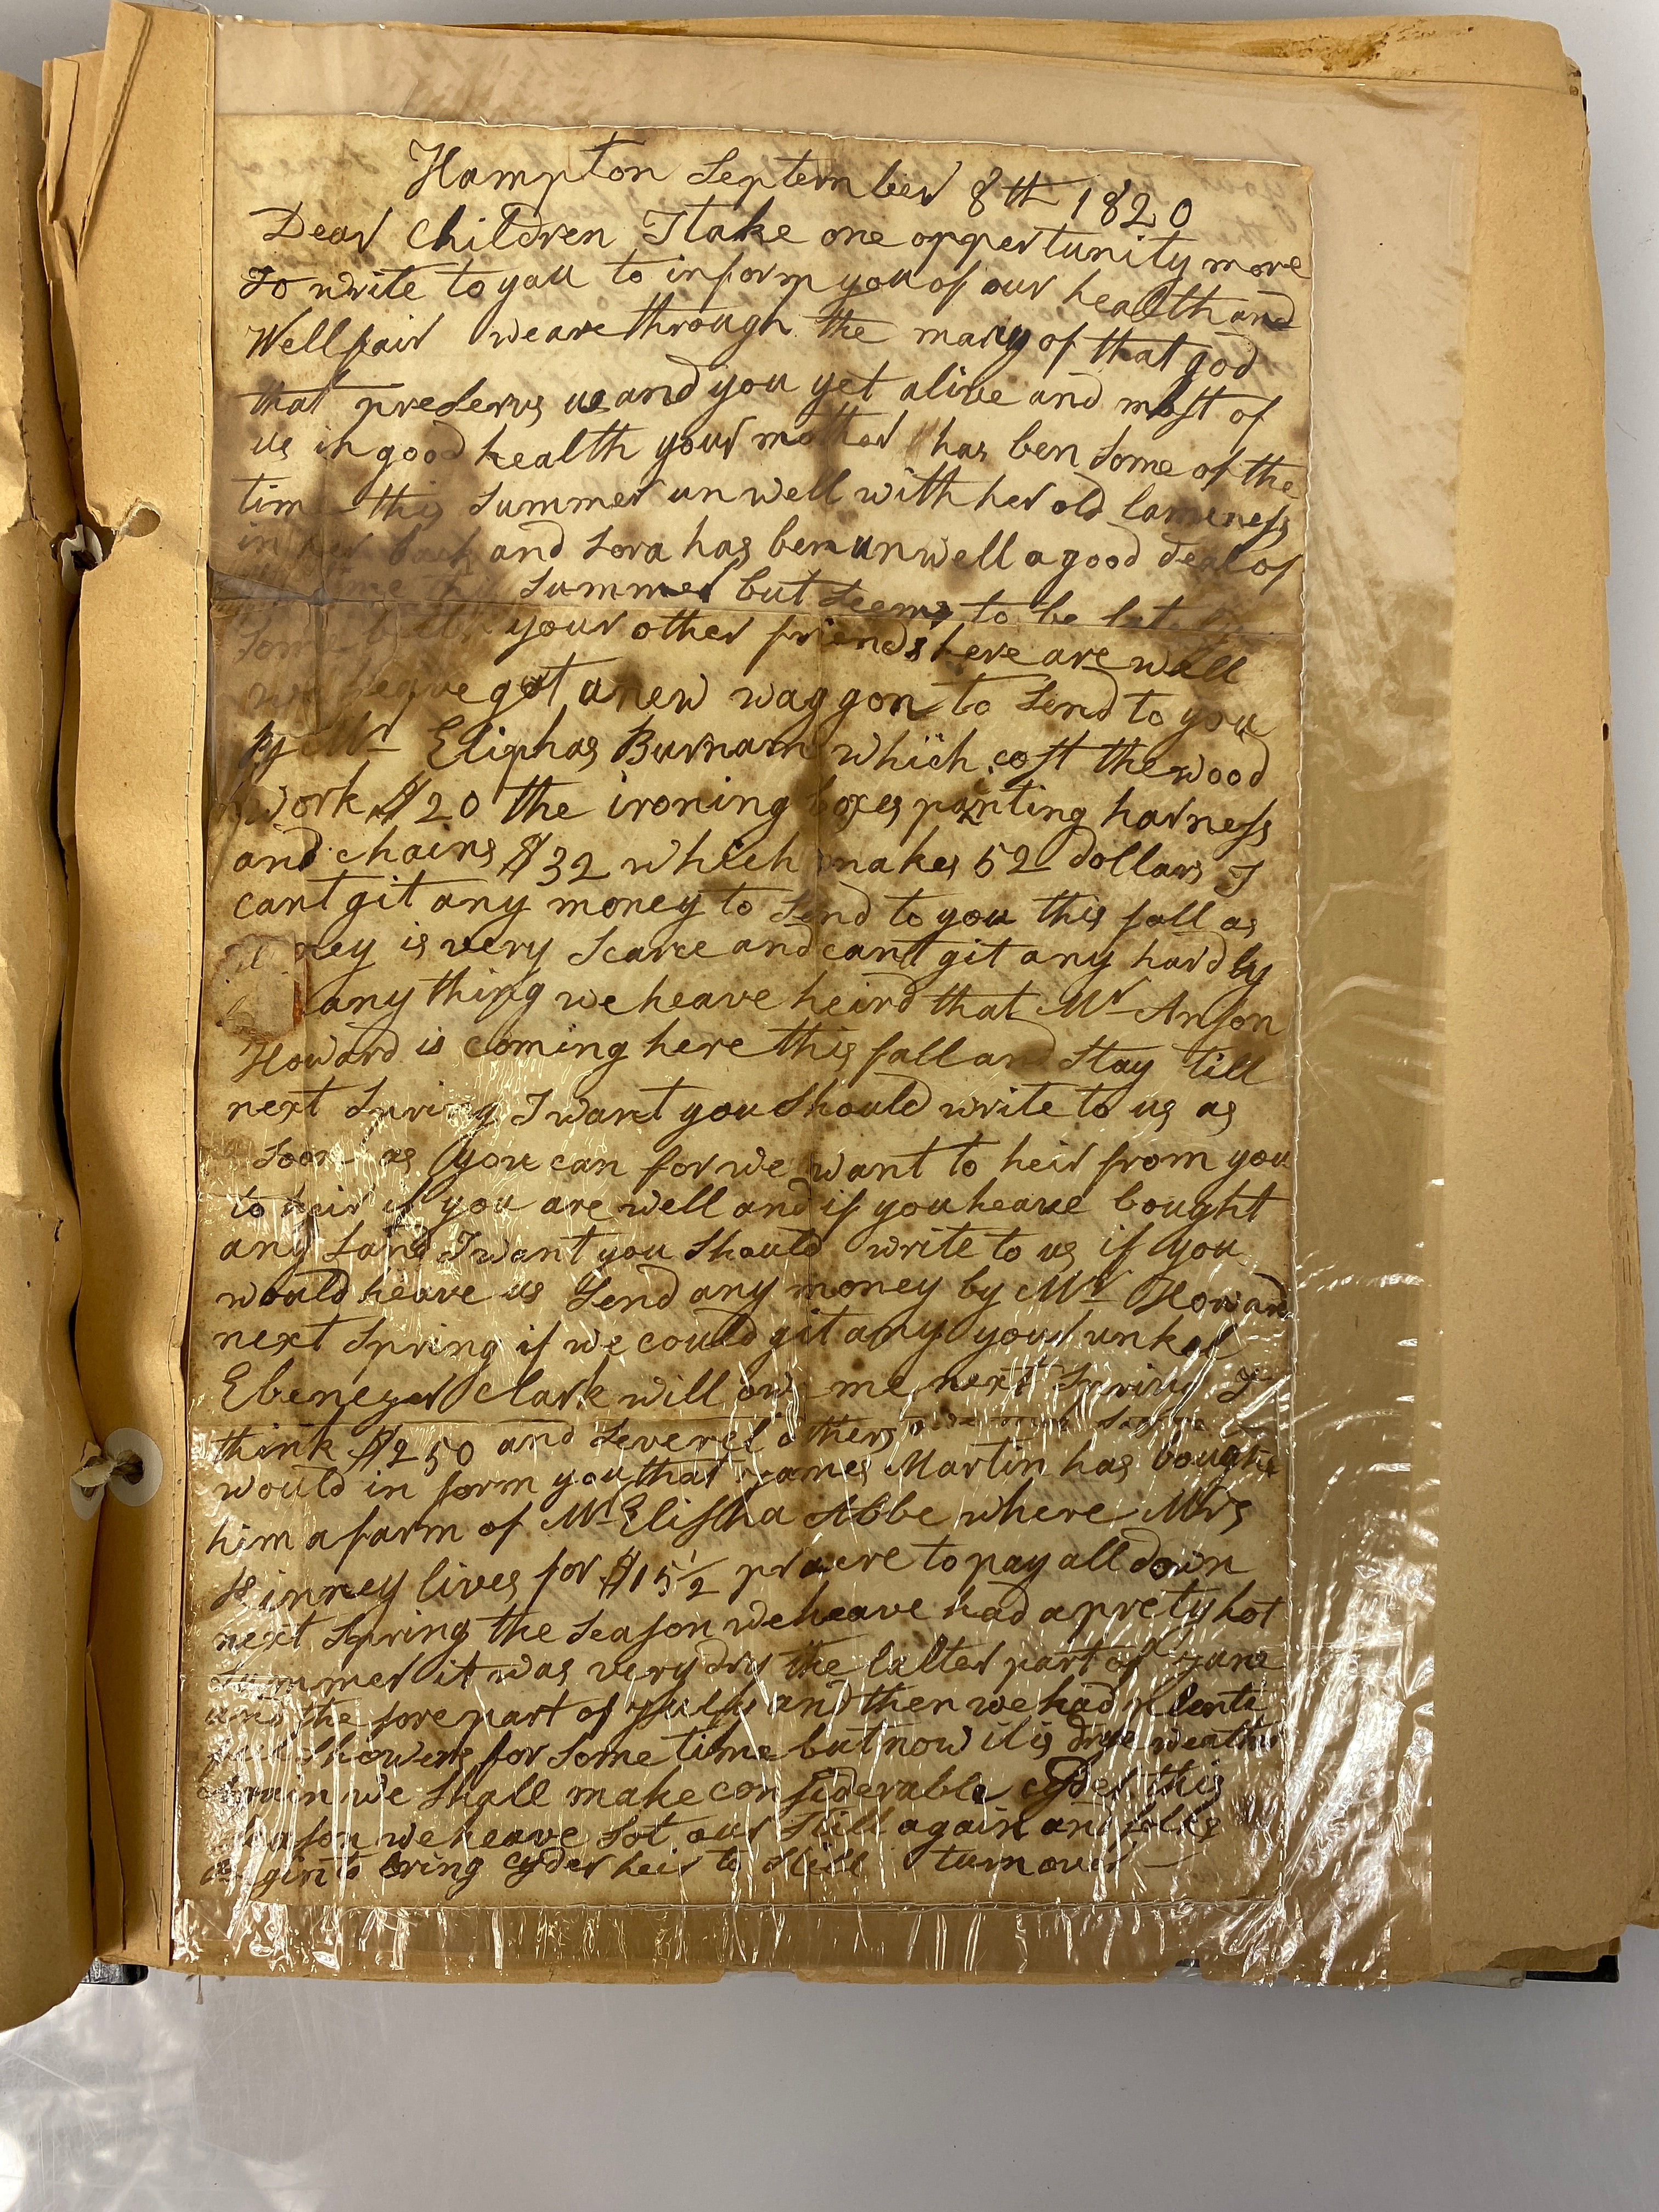 Hampton September 8th 1820
Dear Children I take one oppertunity more
to write to you to inform you of our health and
Wellfair we are through the marcy of that god
that preserves us and you yet alive and most of
us in good health your mother has ben some of the
time this summer unwell with her old lameness
in her back and Lora has ben unwell a good deal of
time summer but seems to be
some your other friends here are well
we heave got a new waggon to send to you
by Mr Eliphas Burnam which cost the wood
work $20 the ironing boxes panting harness
and chains $32 which makes 52 dollars I
cant git any money to send to you this fall as
is very scarce and cant git any hardly
any thing we heave heird that Mr Anson
Howard is coming here this fall and stay till
next Spring I want you should write to us as
soon as you can for we want to heir from you
to heir if you are well and if you heave bought
any land I want you should write to us if you
would heave us send any money by Mr Howard
next Spring if we could git any your unkel
Ebenezer Clark will owe me next Spring I
think $250 and severel others
would in form you that James Martin has bought
him a farm of Mr Elisha Abbe where Mrs
Kinney lives for $15 1/2 pr acre to pay all down
next Spring the season we heave had a prety hot
summer it was very dry the latter part of June
and the fore part of July and then we had plenti
full showers for some time but now it is drye weather
again we shall make considerable cyder this
season we heave sot our still again and folks
begin to bring cyder heir to still turn over